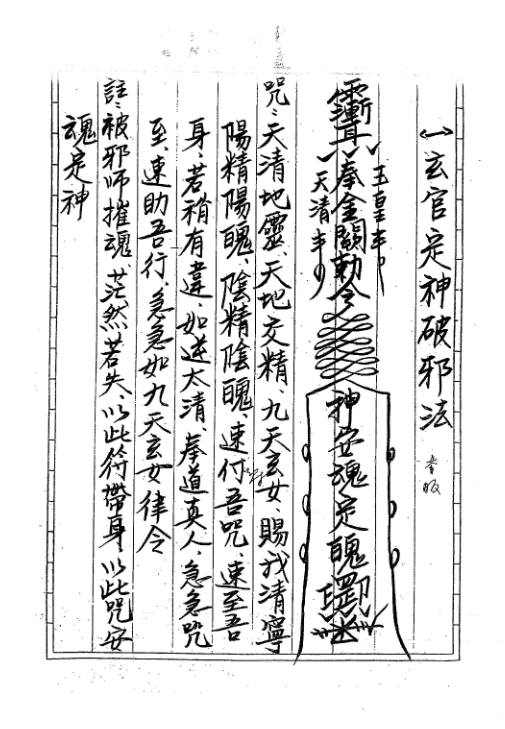 玄官定神破邪法
玉皇
奉金闕勅令
天清
神安魂定魄罡
咒:天清地靈、天地交精、九天玄女、賜我清寧
陽精陽魄、陰精陰魄、速付吾咒、速至吾
身、若稍有違、如逆太清、奉道真人、急急咒
至速助吾行、急急如九天玄女律令
註:被邪師摧魂、茫然若失、以此符帶身、以此咒安
魂定神